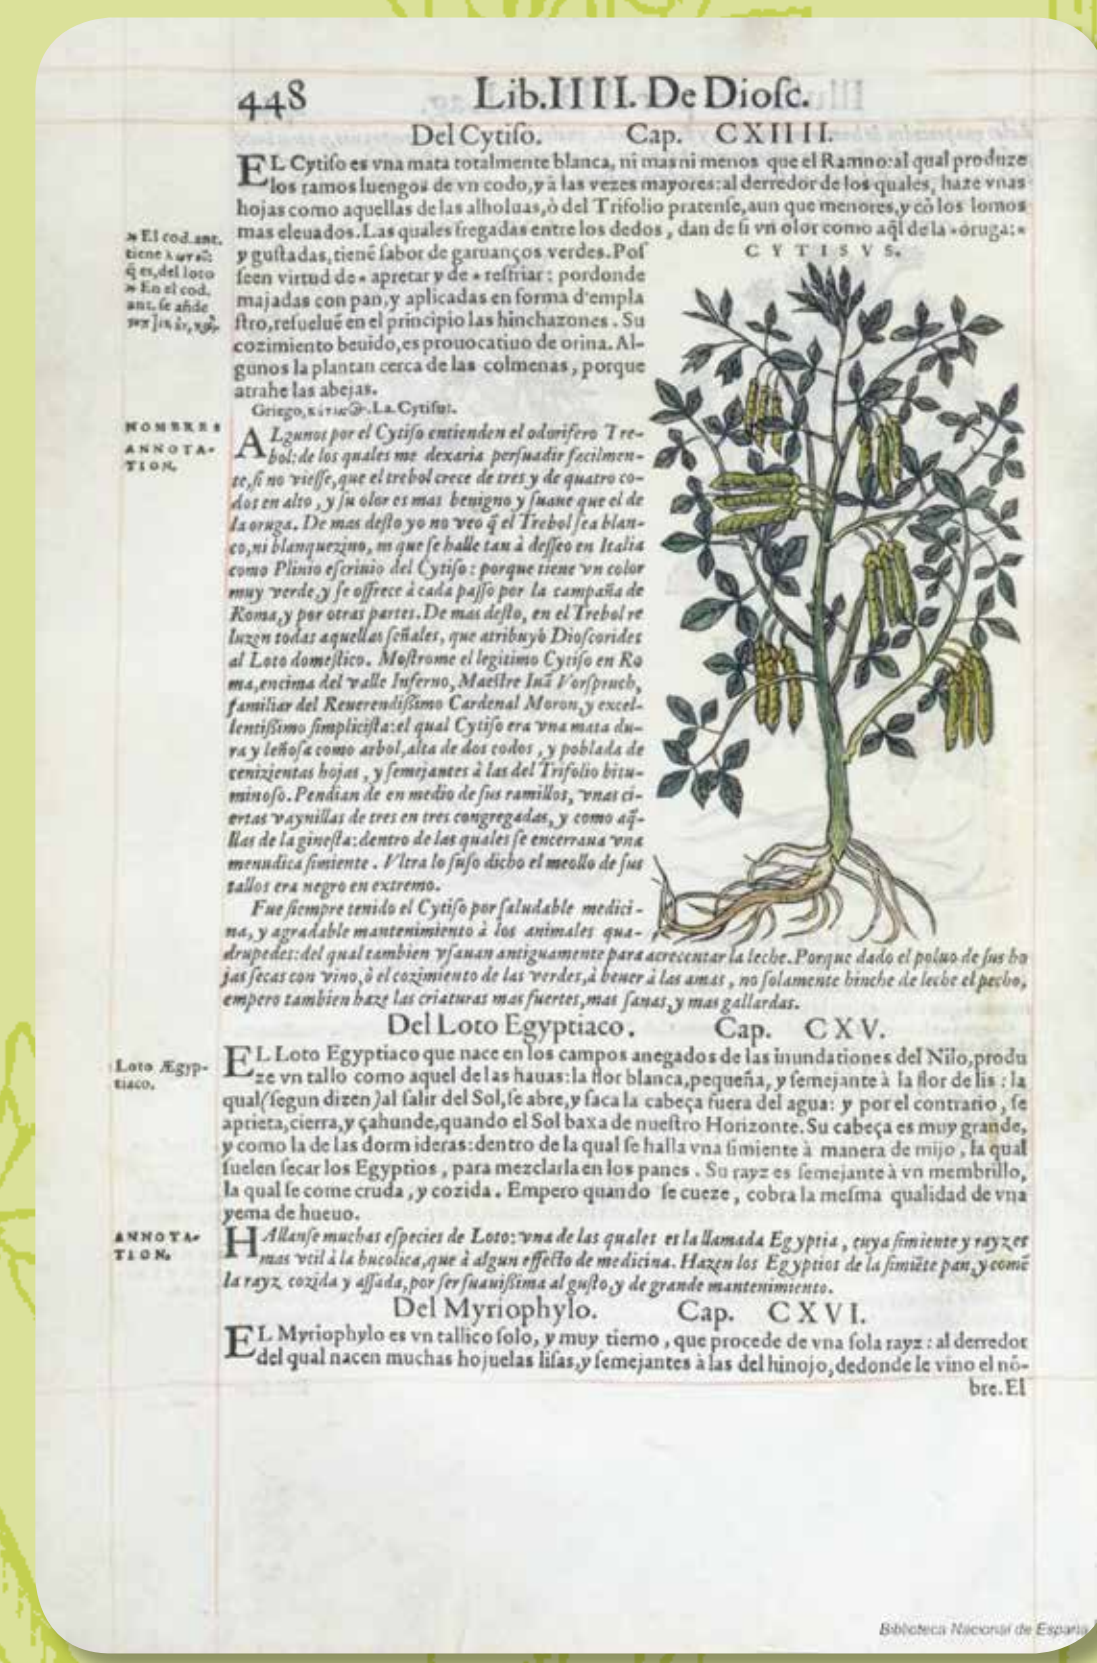 448
Lib.IIII. De Dioſc.
Del Cytiſo. Cap. CXIIII.
EL Cytiſo es vna mata totalmente blanca, ni mas ni menos que el Ramno: al qual produze
los ramos luengos de vn codo, y à las vezes mayores: al derredor de los quales, haze vnas
hojas como aquellas de las alholuas, ò del Trifolio pratenſe, aun que menores, y cõ los lomos
mas eleuados. Las quales fregadas entre los dedos, dan de ſi vn olor como aq̃l de la * oruga: *
y guſtadas, tienẽ ſabor de garuanços verdes. Poſ
ſeen virtud de * apretar y de * reſfriar: por donde
majadas con pan, y aplicadas en forma d'empla
ſtro, reſueluẽ en el principio las hinchazones. Su
cozimiento beuido, es prouocatiuo de orina. Al-
gunos la plantan cerca de las colmenas, porque
atrahe las abejas.
Griego, La. Cytiſus.
» El cod. ant.
tiene
q̃ es, del loto
» En el cod.
ant. ſe añde
CYTISVS.
NOMBRES
ANNOTA-
TION.
ALgunos por el Cytiſo entienden el odorifero Tre-
bol: de los quales me dexaria perſuadir facilmen-
te, ſi no vieſſe, que el trebol crece de tres y de quatro co-
dos en alto, y ſu olor es mas benigno y ſuaue que el de
la oruga. De mas deſto yo no veo q̃ el Trebol ſea blan-
co, ni blanquezino, ni que ſe halle tan à deſſeo en Italia
como Plinio eſcriuio del Cytiſo: porque tiene vn color
muy verde, y ſe offrece à cada paſſo por la campaña de
Roma, y por otras partes. De mas deſto, en el Trebol re
luzen todas aquellas ſeñales, que atribuyò Dioſcorides
al Loto domeſtico. Moſtrome el legitimo Cytiſo en Ro
ma, encima del valle Inferno, Maeſtre Iuã Vorſpruch,
familiar del Reuerendiſſimo Cardenal Moron, y excel-
lentiſſimo ſimpliciſta: el qual Cytiſo era vna mata du-
ra y leñoſa como arbol, alta de dos codos, y poblada de
cenizientas hojas, y ſemejantes à las del Trifolio bitu-
minoſo. Pendian de en medio de ſus ramillos, vnas ci-
ertas vaynillas de tres en tres congregadas, y como aq̃-
llas de la gineſta: dentro de las quales ſe encerraua vna
menudica ſimiente. Vltra lo ſuſo dicho el meollo de ſus
tallos era negro en extremo.
Fue ſiempre tenido el Cytiſo por ſaludable medici-
na, y agradable mantenimiento à los animales qua-
drupedes: del qual tambien vſauan antiguamente para acrecentar la leche. Porque dado el poluo de ſus ho
jas ſecas con vino, ò el cozimiento de las verdes, à beuer à las amas, no ſolamente hinche de leche el pecho,
empero tambien haze las criaturas mas fuertes, mas ſanas, y mas gallardas.
Del Loto Egyptiaco. Cap. CXV.
Loto Ægyp-
tiaco.
EL Loto Egyptiaco que nace en los campos anegados de las inundationes del Nilo, produ
ze vn tallo como aquel de las hauas: la flor blanca, pequeña, y ſemejante à la flor de lis: la
qual (ſegun dizen) al ſalir del Sol, ſe abre, y ſaca la cabeça fuera del agua: y por el contrario, ſe
aprieta, cierra, y çahunde, quando el Sol baxa de nueſtro Horizonte. Su cabeça es muy grande,
y como la de las dormideras: dentro de la qual ſe halla vna ſimiente à manera de mijo, la qual
ſuelen ſecar los Egyptios, para mezclarla en los panes. Su rayz es ſemejante à vn membrillo,
la qual ſe come cruda, y cozida. Empero quando ſe cueze, cobra la meſma qualidad de vna
yema de hueuo.
ANNOTA-
TION.
HAllanſe muchas eſpecies de Loto: vna de las quales es la llamada Egyptia, cuya ſimiente y rayz es
mas vtil à la bucolica, que à algun effecto de medicina. Hazen los Egyptios de la ſimiẽte pan, y comẽ
la rayz cozida y aſſada, por ſer ſuauiſſima al guſto, y de grande mantenimiento.
Del Myriophylo. Cap. CXVI.
EL Myriophylo es vn tallico ſolo, y muy tierno, que procede de vna ſola rayz: al derredor
del qual nacen muchas hojuelas liſas, y ſemejantes à las del hinojo, de donde le vino el nõ-
bre. El
Biblioteca Nacional de España